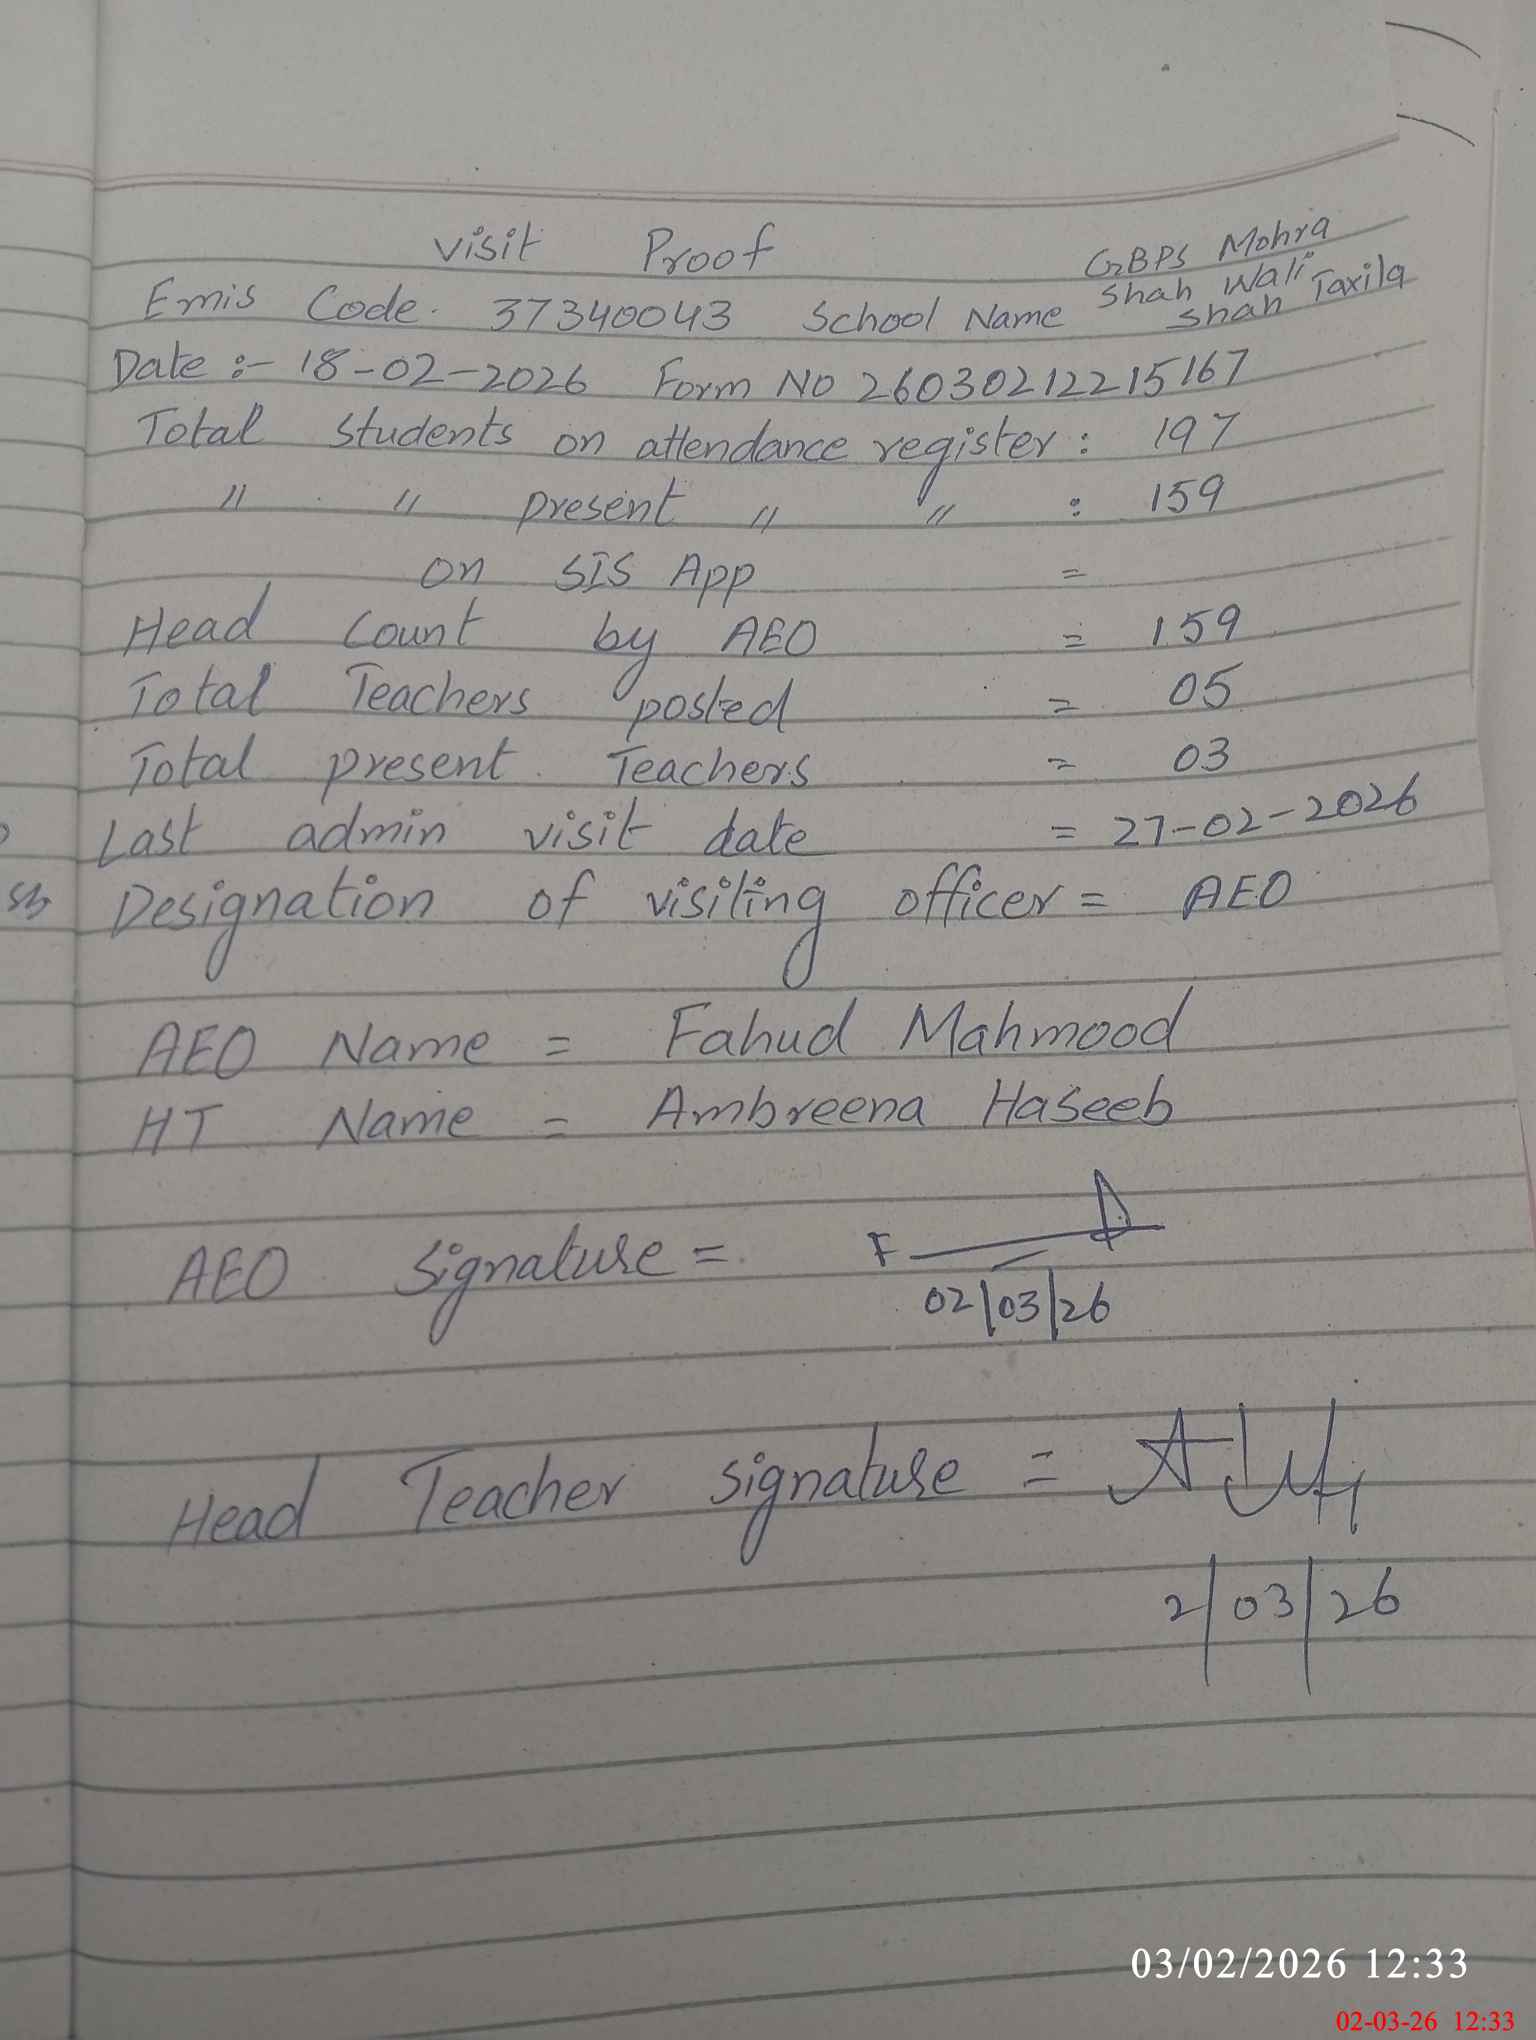 visit Proof
Emis Code. 37340043 School Name GBPS Mohra Shah Wali Shah Taxila
Date :- 18-02-2026 Form No 260302122 15167
Total students on attendance register : 197
" " present " " : 159
on SIS App =
Head Count by AEO = 159
Total Teachers posted = 05
Total present Teachers = 03
Last admin visit date = 27-02-2026
Designation of visiting officer = AEO
AEO Name = Fahud Mahmood
HT Name = Ambreena Haseeb
AEO Signature = F
02/03/26
Head Teacher signature =
2/03/26
03/02/2026 12:33
02-03-26 12:33